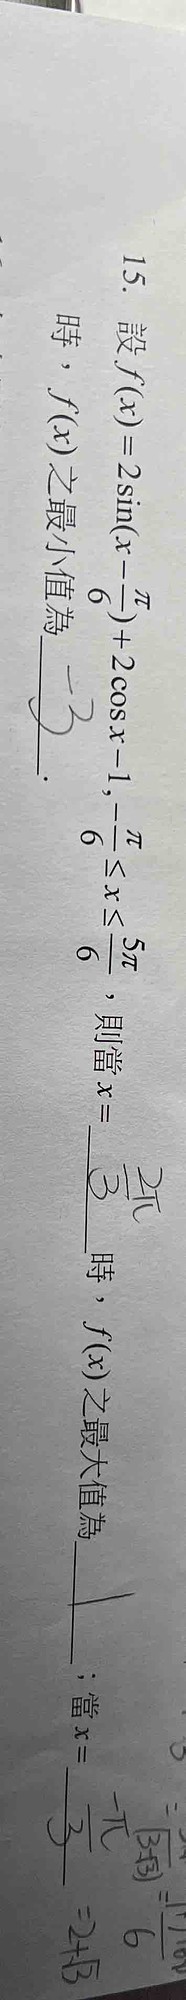 15. 設 f(x) = 2sin(x − π/6) + 2cos x − 1, −π/6 ≤ x ≤ 5π/6,則當 x = 2π/3 時,f(x) 之最大值為 1 ;當 x = −π/3
時,f(x) 之最小值為 −3 .
= 2+√3